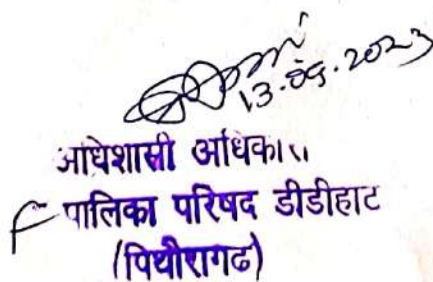 13.09.2023
अधिशासी अधिकारी
पालिका परिषद डीडीहाट
(पिथौरागढ)